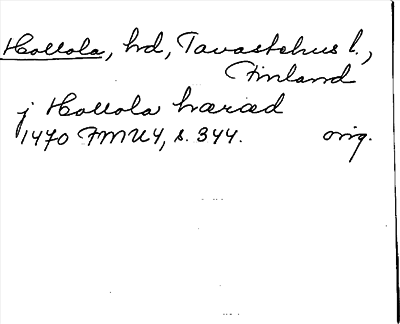 Hollola, hd, Tavastehus l.,
Finland
j Hollola hæræd
1470 FMU4, s. 344. orig.